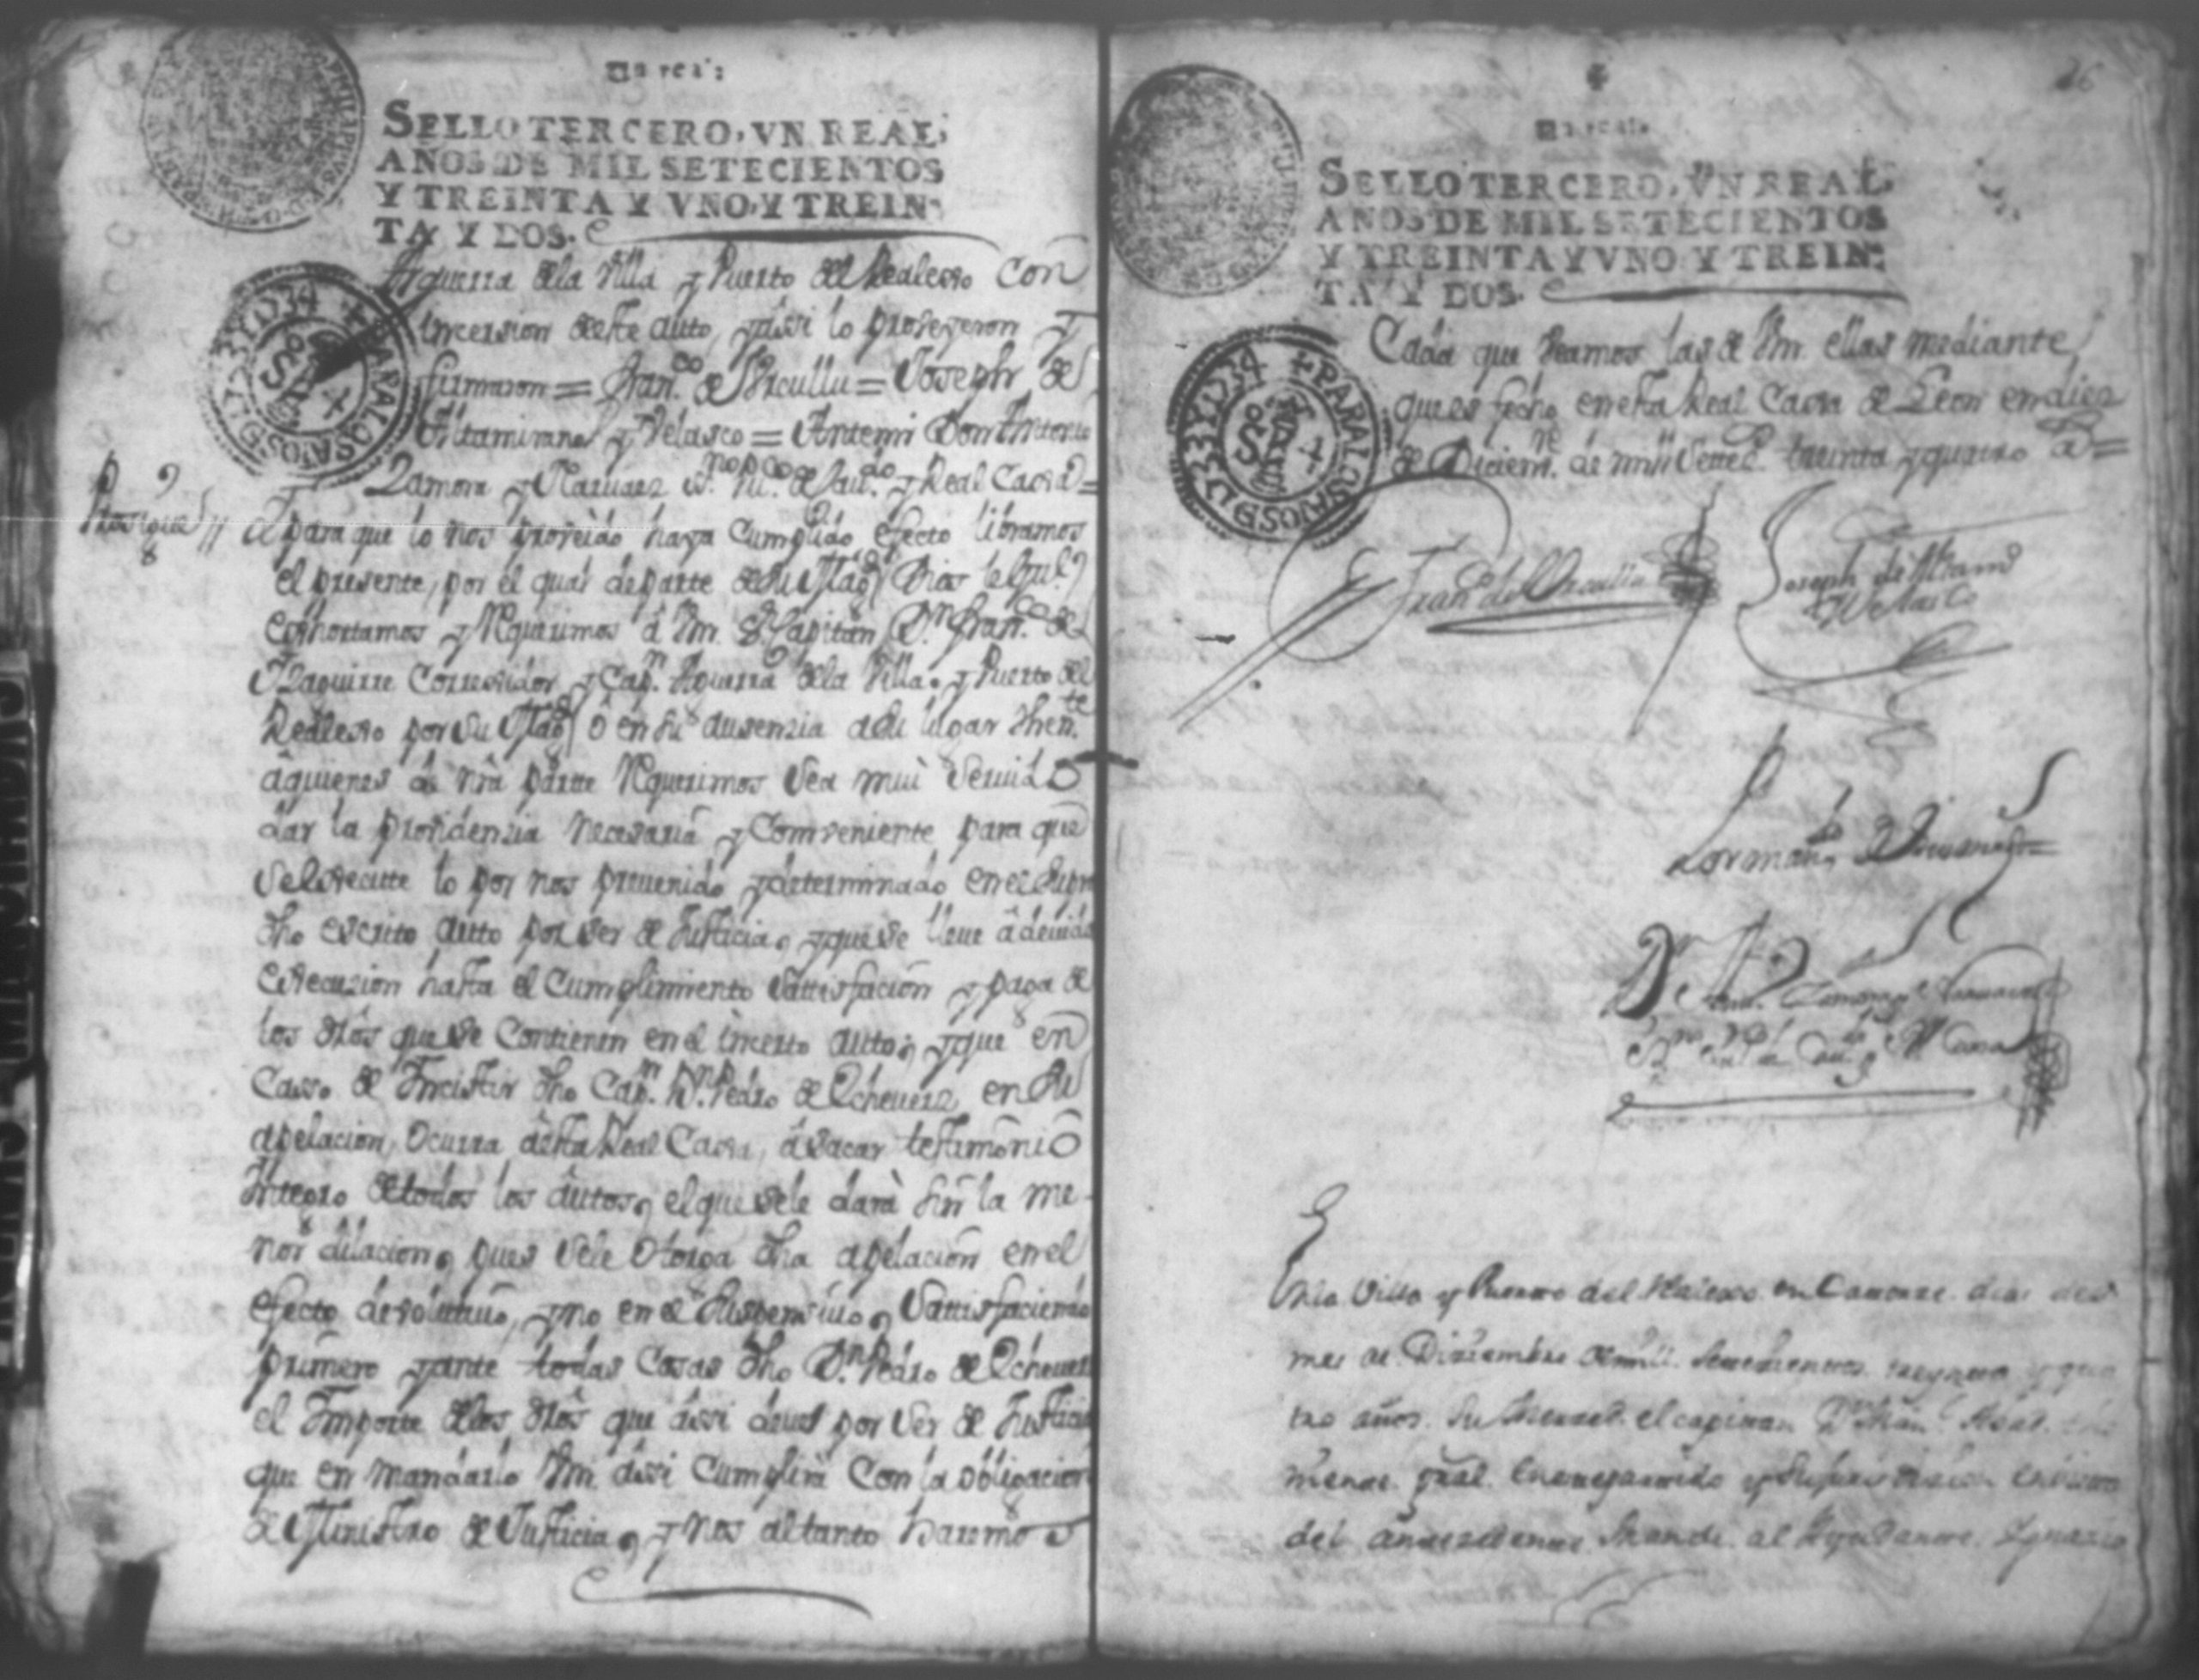 Un real
SELLO TERCERO, VN REAL,
AÑOS DE MIL SETECIENTOS
Y TREINTA Y VNO, Y TREIN-
TA Y DOS.
PARA LOS AÑOS DE 733 Y D 734
Aguerra dela Villa y Puerto del Realexo con
incersion deste auto, y assi lo proveyeron y
firmaron = Fran.co de Vrcullu = Joseph de
Altamirano y Velasco = Antemi Don Antonio
Zamora y Naruaez es.no pu.co de Gau.do y Real Caxa =
Prosigue // el para que lo nos proveido haya cumplido efecto libramos
el presente, por el qual departe de su Mag.d (Dios le Gu.e)
exhortamos y Requerimos â Vm. S.r Capitan D.n Fran.co de
Yzaguirre Corregidor y Cap.n Aguerra dela Villa y Puerto del
Realexo por su Mag.d ô en su ausenzia asu lugar then.te
âquienes de nrâ parte Requerimos sea mui seruido
dar la prouidenzia necesaria y Comveniente para que
se lexecute lo por nos preuenido y determinado en el supra
dho escrito autto por ser de Justicia, y que se lleue âdeuida
execuzion hasta el cumplimiento sattisfacion y paga de
los dros que se contienen en el incerto autto, y que en
Casso de Incistir dho Cap.n D.n Pedro de Echeuers en su
apelacion, ocurra âesta Real Caxa, â sacar testimonio
Integro de todos los autos, el que se le dará sin la me-
nor dilacion, pues se le otorga dha apelacion en el
efecto devolutiuo, y no en el suspensiuo, Sattisfaciendo
primero y ante todas cosas dho D.n Pedro de Echeuers
el Importe delos dros que assi deue por ser de Justicia
que en mandarlo Vm. assi cumplira con la obligacion
de Ministro de Justicia, y nos altanto haremos
26
Un real
SELLO TERCERO, VN REAL,
AÑOS DE MIL SETECIENTOS
Y TREINTA Y VNO Y TREIN-
TA Y DOS.
PARA LOS AÑOS DE 733 Y D 734
Cada que veamos las de Vm. ellas mediante,
que es fecho en esta Real Caxa de Leon en diez
de Diciem.re de mill setec.os treinta y quatro a.s =
Fran.co de Vrcullu
Joseph de Altamir.no
y Velasco
Por man.do de
D.n Ant.o Zamora y Naruaez
Es.no pu.co de Gau.do y R.l Caxa
En la Villa y Puerto del Realexo en Catorze dias del
mes de Diziembre de mill setecientos treynta y qua
tro años. Su Merced el capitan D.n
del antezedente Mando al Ayudante Ygnazio